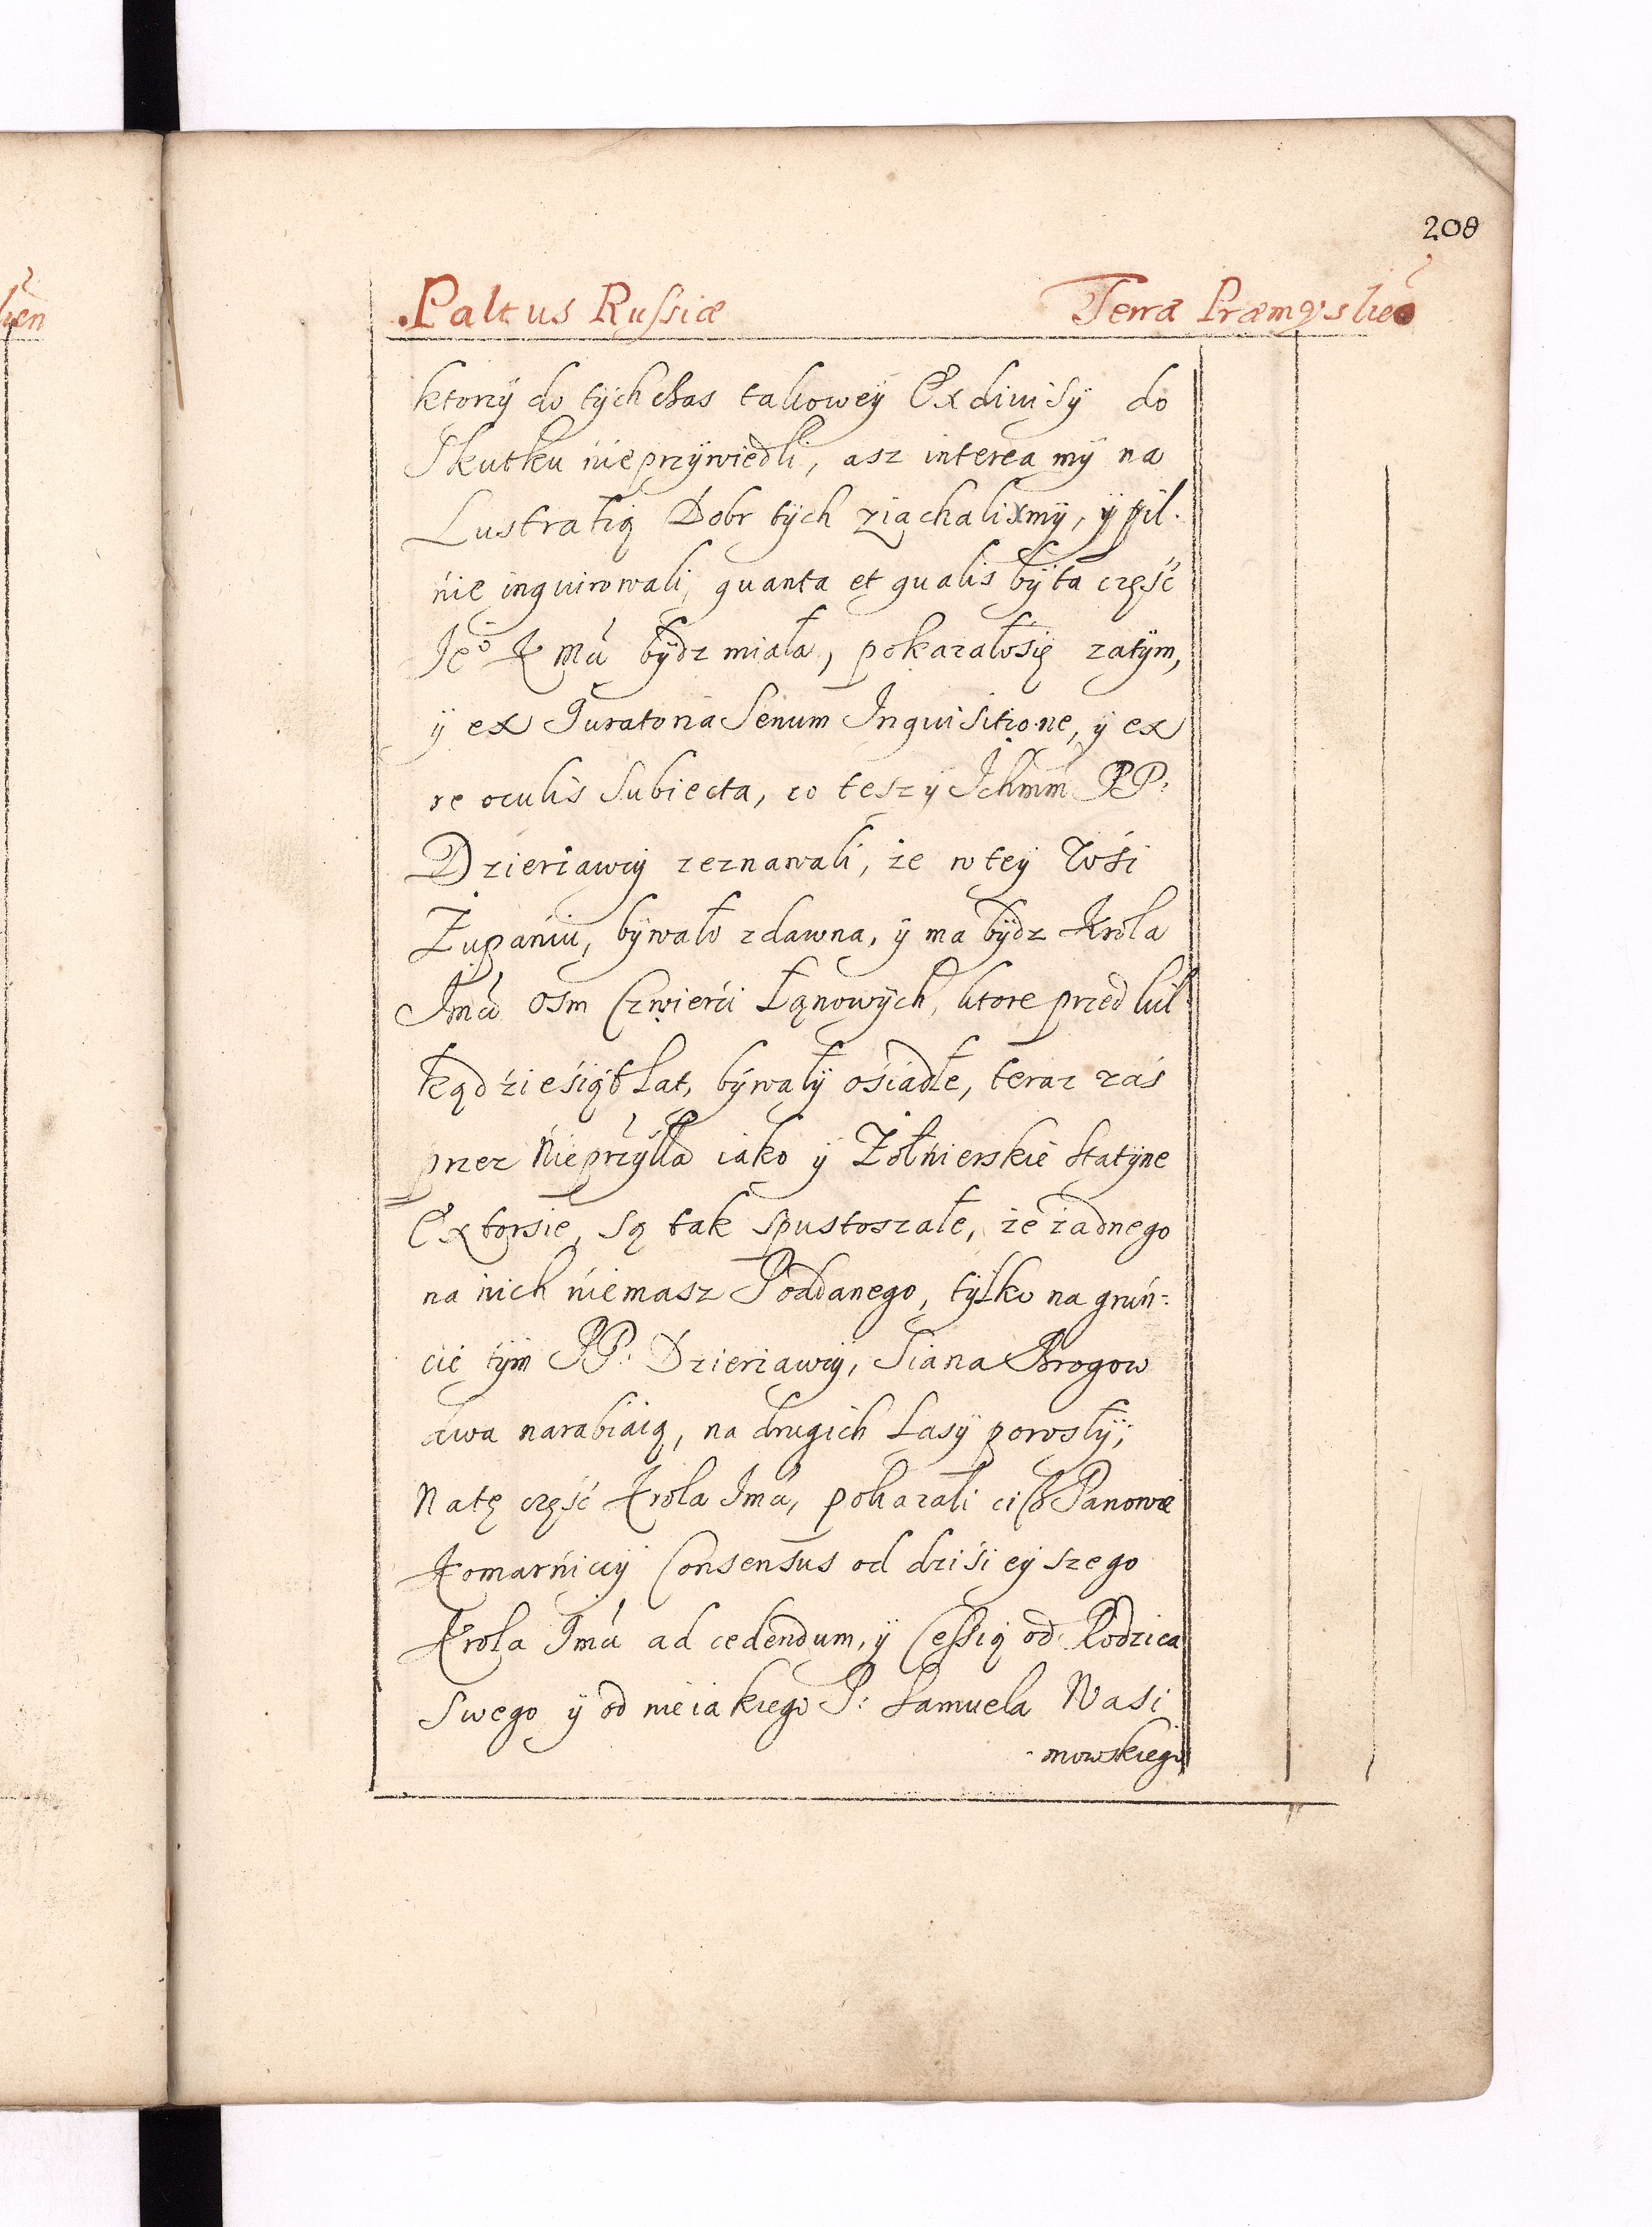 208
Paltus Russiæ Terræ Præmysliē
ktorzÿ do tÿch chas takoweÿ Exdiuisÿ do
Skutku nieprzÿwiedli, asz interea mÿ na
Lustratią Dobr tÿch ziachalismÿ, ÿ pil-
nie inquirowali, quanta et qualis bÿ ta część
Jeo K Mći bÿdz miała, pokazałosię zatÿm,
ÿ ex Juratoria Senum Inquisitione, ÿ ex
re oculis Subiecta, co tesz ÿ Ichmm PP:
Dzierżawcÿ zeznawali, że w teÿ Wśi
Żupaniu, bÿwało zdawna, ÿ ma bÿdz Króla
Jmći osm Czwierci Łanowÿch, ktore przed kil
kądzieśiąt Lat, bÿwałÿ ośiadłe, teraz zaś
przez Nieprzÿlā iako ÿ Żołnierskie Statÿne
Extorsie, są tak spustoszałe, że żadnego
na nich niemasz Poddanego, tÿlko na grun=
cie tÿm PP: Dzierżawcÿ, Siana Brogow
dwa narabiaią, na drugich Lasÿ porosłÿ;
Natę część Króla Jmći, pokazali ciż Panowie
Komarniccÿ Consensus od dziśieÿszego
Krola Jmći ad cedendum, ÿ Cessią od Rodzica
Swego ÿ od nieiakiego P: Samuela Wasi
-nowskiego
lien